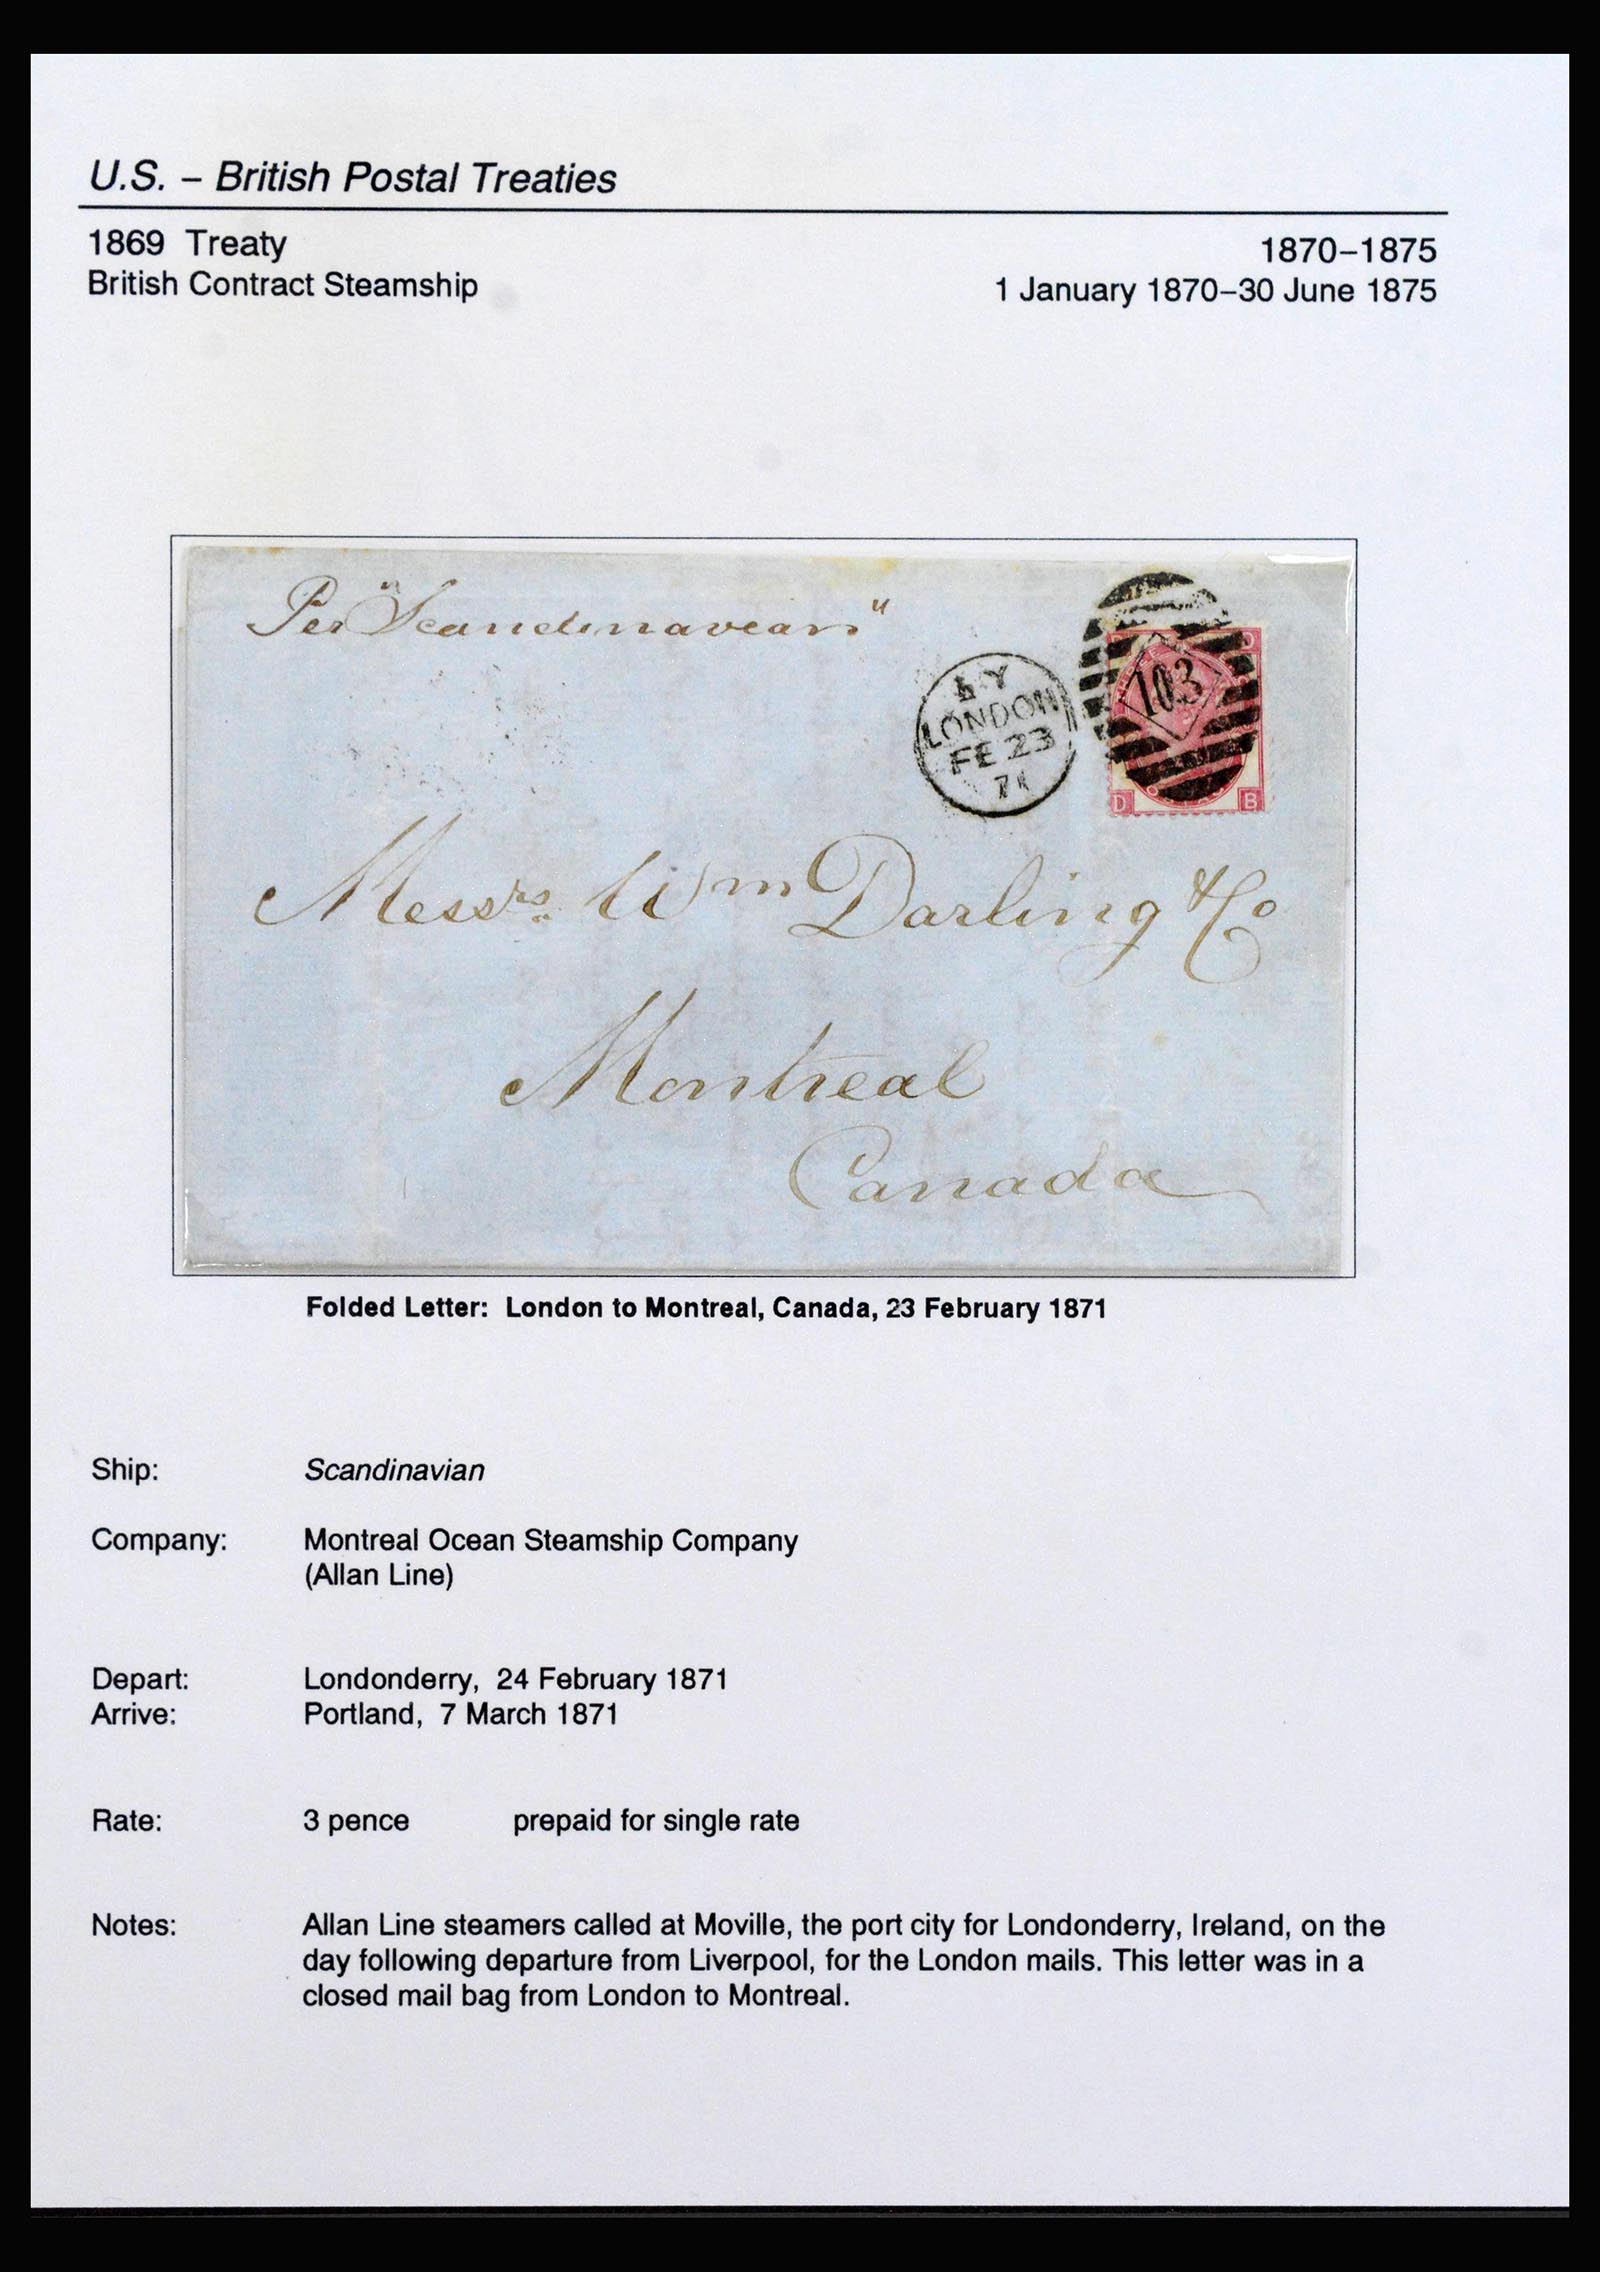 U.S. – British Postal Treaties
1869 Treaty
1870–1875
British Contract Steamship
1 January 1870–30 June 1875
Per "Scandinavian"
LONDON
FE 23
71
103
D B
Messrs Wm Darling & Co
Montreal
Canada
Folded Letter: London to Montreal, Canada, 23 February 1871
Ship: Scandinavian
Company: Montreal Ocean Steamship Company
(Allan Line)
Depart: Londonderry, 24 February 1871
Arrive: Portland, 7 March 1871
Rate: 3 pence prepaid for single rate
Notes: Allan Line steamers called at Moville, the port city for Londonderry, Ireland, on the
day following departure from Liverpool, for the London mails. This letter was in a
closed mail bag from London to Montreal.